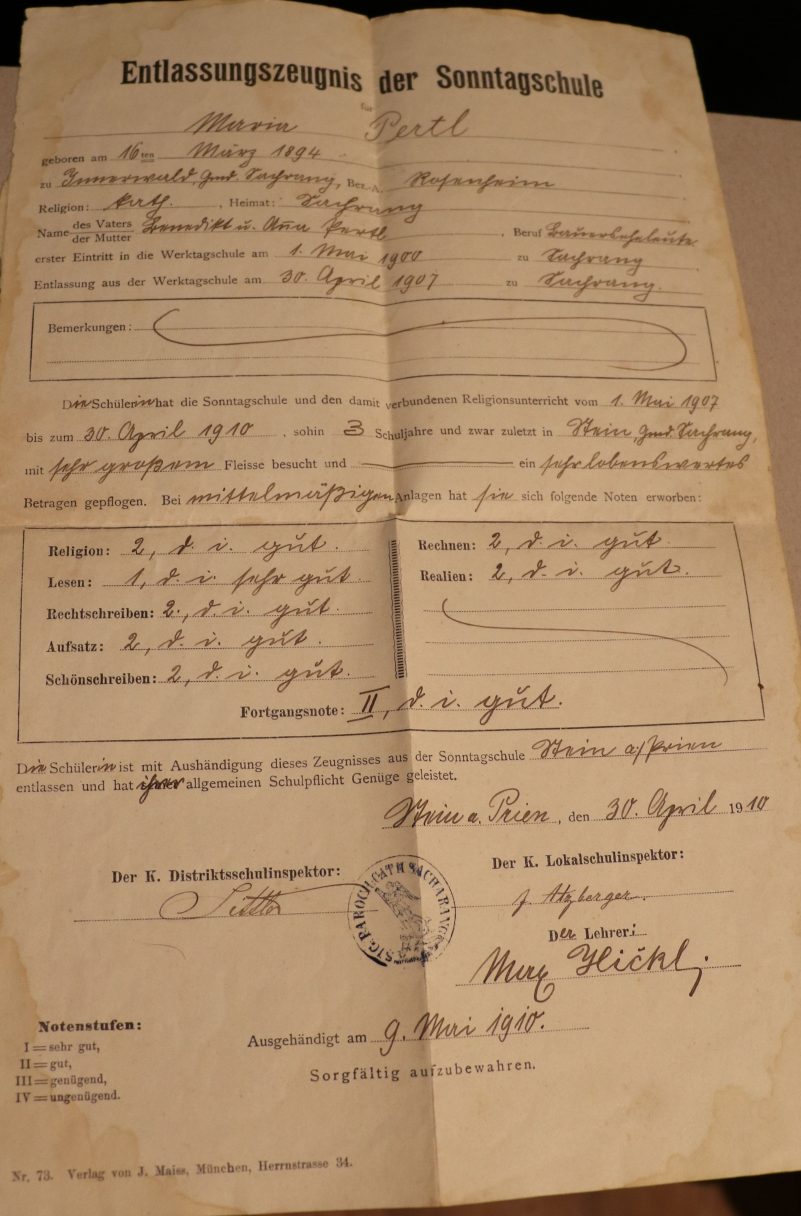 Entlassungszeugnis der Sonntagschule
für
Maria Pertl
geboren am 16ten März 1894
zu Innerwald, Gmd. Sachrang, Bez.-A. Rosenheim
Religion: kath. , Heimat: Sachrang
Name des Vaters / der Mutter Benedikt u. Anna Pertl , Beruf Bauerseheleute
erster Eintritt in die Werktagschule am 1. Mai 1900 zu Sachrang
Entlassung aus der Werktagschule am 30. April 1907 zu Sachrang.
Bemerkungen:
Die Schülerin hat die Sonntagschule und den damit verbundenen Religionsunterricht vom 1. Mai 1907
bis zum 30. April 1910 , sohin 3 Schuljahre und zwar zuletzt in Stein, Gmd. Sachrang,
mit sehr großem Fleisse besucht und ein sehr lobenswertes
Betragen gepflogen. Bei mittelmäßigen Anlagen hat sie sich folgende Noten erworben:
Religion: 2, d. i. gut.
Lesen: 1, d. i. sehr gut.
Rechtschreiben: 2, d. i. gut.
Aufsatz: 2, d. i. gut.
Schönschreiben: 2, d. i. gut.
Rechnen: 2, d. i. gut.
Realien: 2, d. i. gut.
Fortgangsnote: II, d. i. gut.
Die Schülerin ist mit Aushändigung dieses Zeugnisses aus der Sonntagschule Stein a/Prien
entlassen und hat ihrer allgemeinen Schulpflicht Genüge geleistet.
Stein a. Prien, den 30. April 1910
Der K. Distriktsschulinspektor:
Der K. Lokalschulinspektor:
J. Atzberger
SIG. PAROCH. CATH. SACHRANG
Der Lehrer:
Max Hickl.
Ausgehändigt am 9. Mai 1910.
Sorgfältig aufzubewahren.
Notenstufen:
I = sehr gut,
II = gut,
III = genügend,
IV = ungenügend.
Nr. 73. Verlag von J. Maiss, München, Herrnstrasse 34.